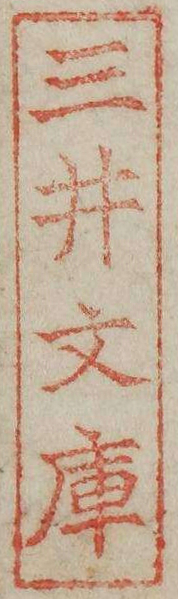 三井文庫